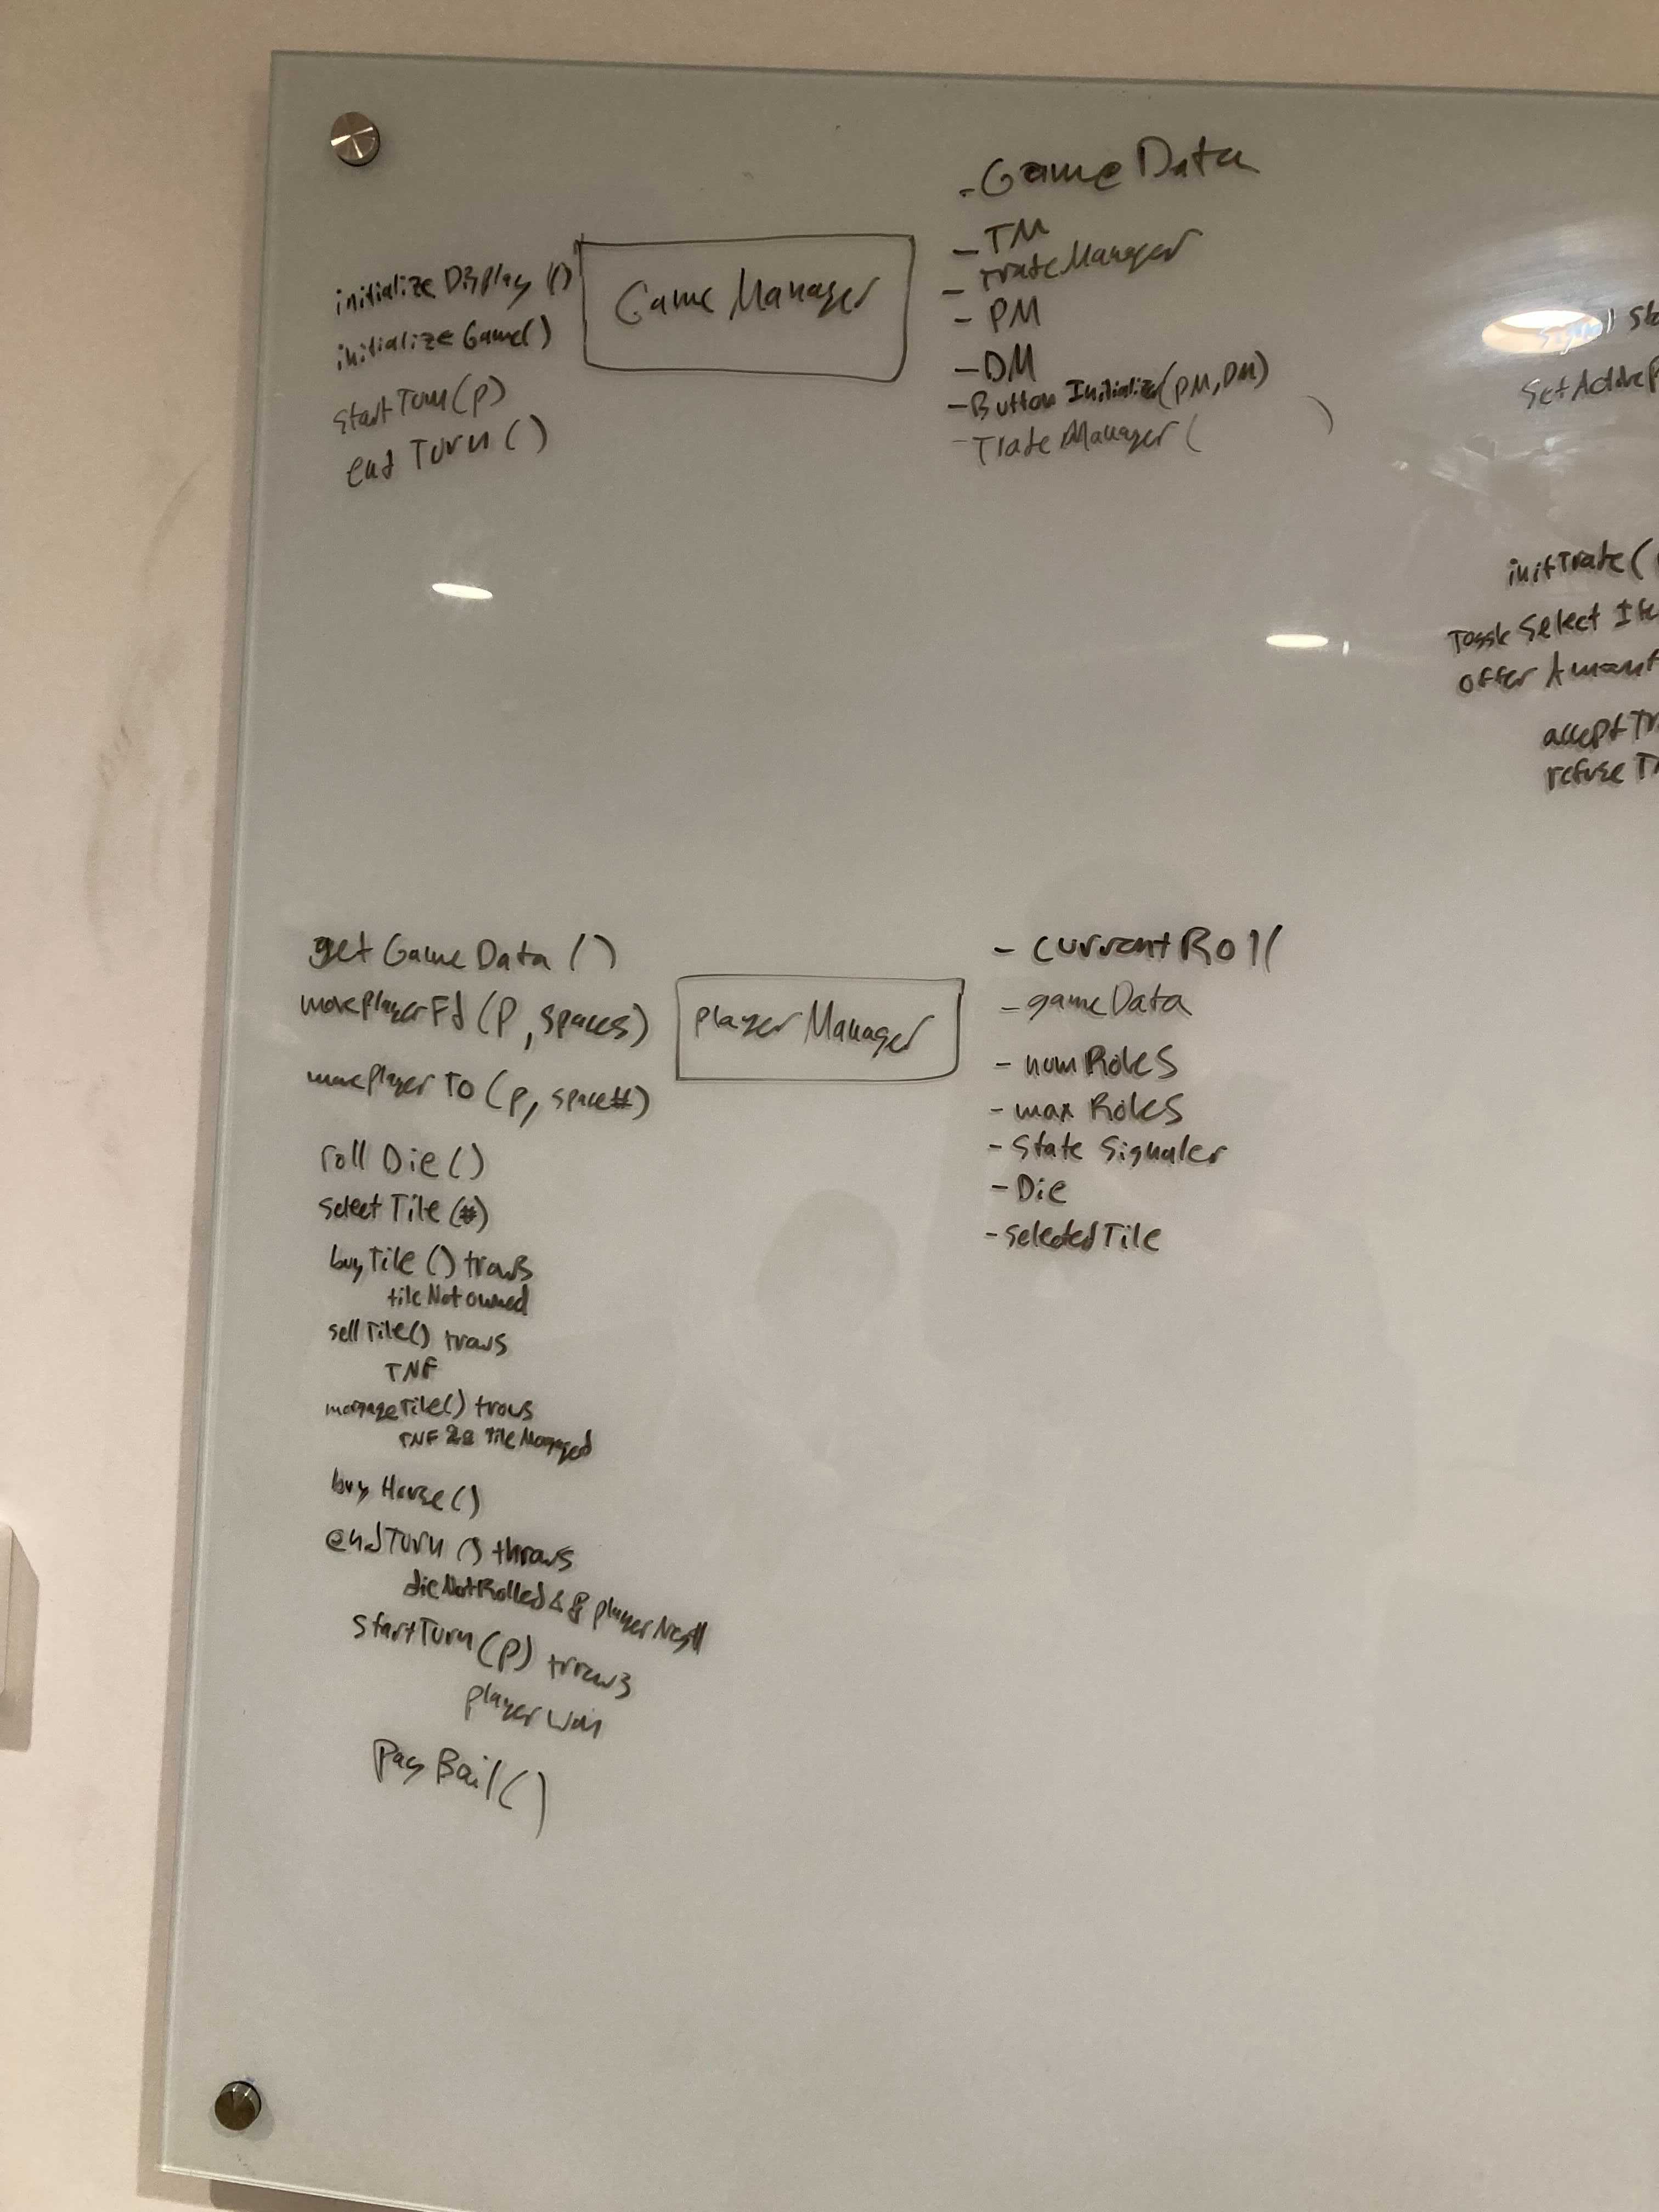 initializeDisplay ()
initializeGame()
startTurn(P)
end Turn ()
Game Manager
- Game Data
- TM
- TrateManager
- PM
- DM
- Button Initialize(PM, DM)
- TrateManager ( )
SetActive
initTrate (
Toggle Select Ite
offer Amount
accept Tr
refuse T
get Game Data ()
movePlayerFd (P, spaces)
movePlayer To (P, space#)
roll Die ()
select Tile (#)
buy Tile () trows
tile Not owned
sell Tile() trows
TNF
morgageTile() trows
TNF && Tile Morgaged
buy House ()
endTurn () throws
dieNotRolled && player
startTurn (P) trrows
player won
Pay Bail ()
player Manager
- currentRoll
- gameData
- numRoles
- max Roles
- State Signaler
- Die
- selectedTile